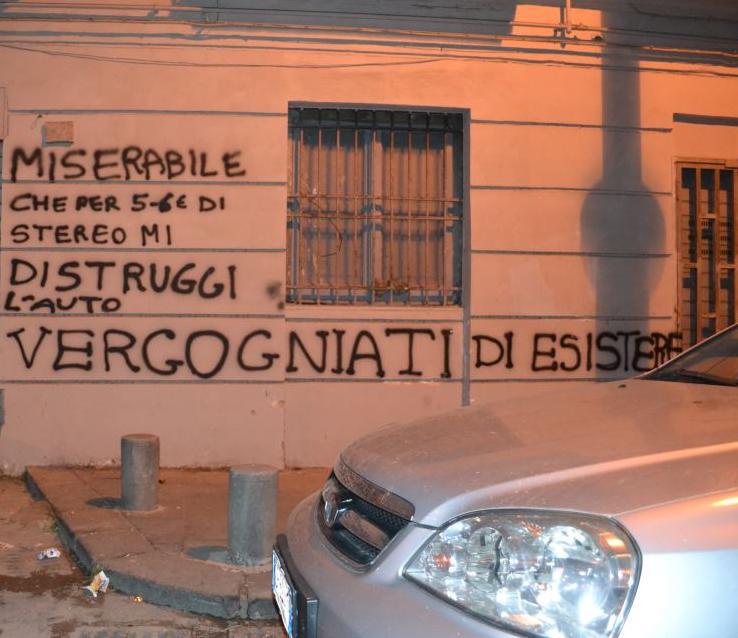 MISERABILE
CHE PER 5-6€ DI
STEREO MI
DISTRUGGI
L'AUTO
VERGOGNIATI DI ESISTERE